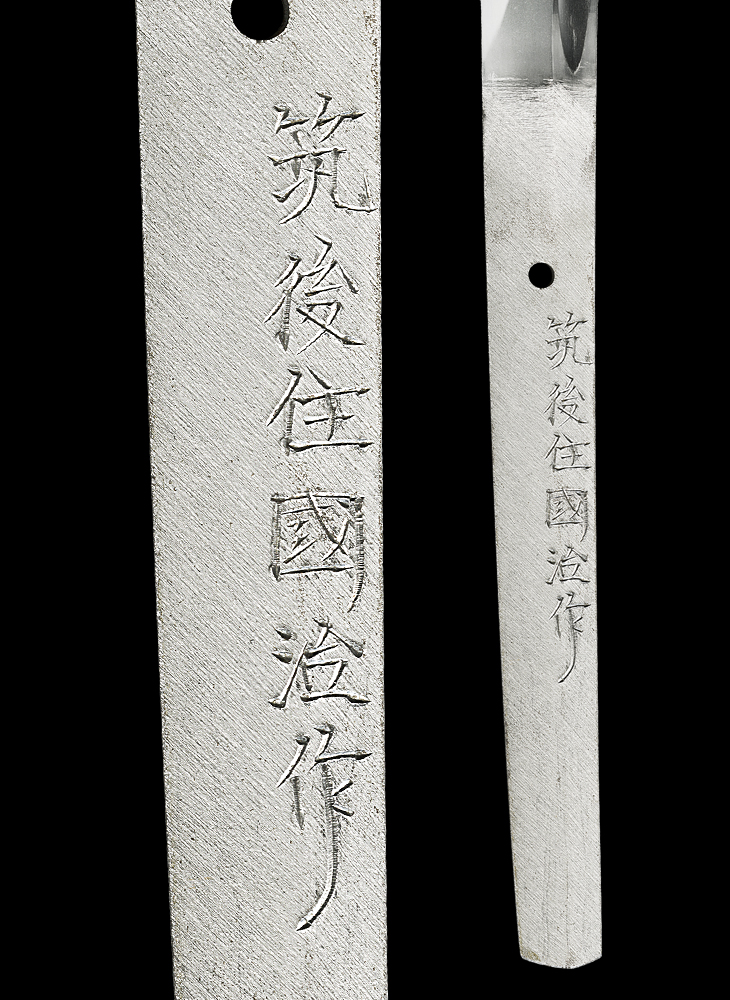 筑後住國治作
筑後住國治作